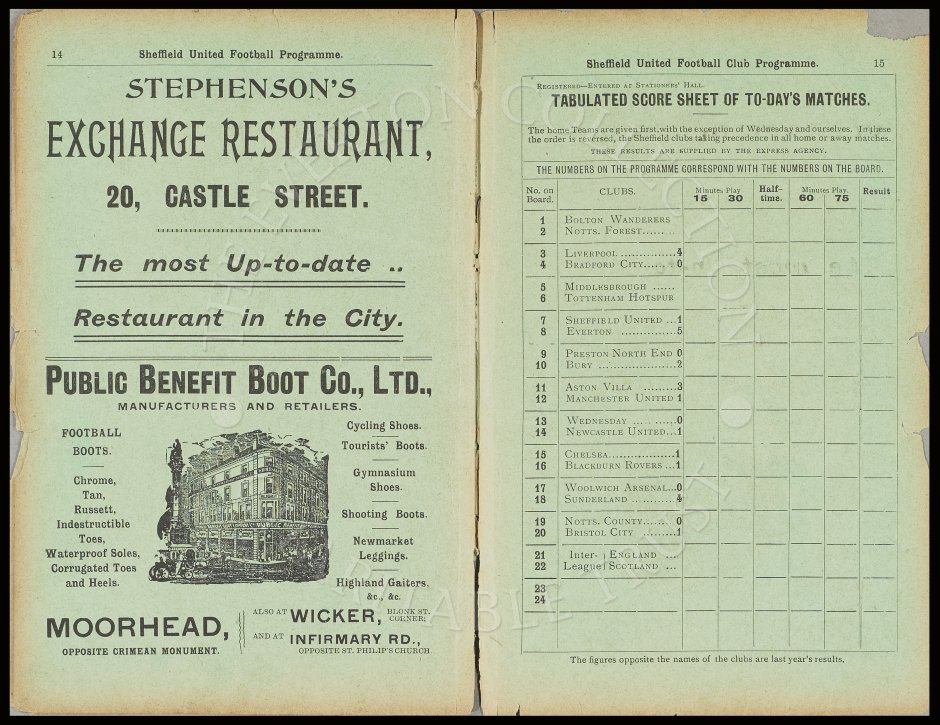 14
Sheffield United Football Programme.
STEPHENSON'S
EXCHANGE RESTAURANT,
20, CASTLE STREET.
The most Up-to-date ..
Restaurant in the City.
PUBLIC BENEFIT BOOT CO., LTD.,
MANUFACTURERS AND RETAILERS.
FOOTBALL
BOOTS.
Chrome,
Tan,
Russett,
Indestructible
Toes,
Waterproof Soles,
Corrugated Toes
and Heels.
Cycling Shoes.
Tourists' Boots.
Gymnasium
Shoes.
Shooting Boots.
Newmarket
Leggings.
Highland Gaiters,
&c., &c.
MOORHEAD,
OPPOSITE CRIMEAN MONUMENT.
ALSO AT WICKER, BLONK ST. CORNER;
AND AT INFIRMARY RD.,
OPPOSITE ST. PHILIP'S CHURCH
Sheffield United Football Club Programme. 15
REGISTERED—ENTERED AT STATIONERS' HALL.
TABULATED SCORE SHEET OF TO-DAY'S MATCHES.
The home Teams are given first, with the exception of Wednesday and ourselves. In these
the order is reversed, the Sheffield clubs taking precedence in all home or away matches.
THESE RESULTS ARE SUPPLIED BY THE EXPRESS AGENCY.
THE NUMBERS ON THE PROGRAMME CORRESPOND WITH THE NUMBERS ON THE BOARD.
No. on Board. CLUBS. Minutes Play 15 30 Half-time. Minutes Play. 60 75 Result
1 BOLTON WANDERERS
2 NOTTS. FOREST........
3 LIVERPOOL ...............4
4 BRADFORD CITY......0
5 MIDDLESBROUGH ......
6 TOTTENHAM HOTSPUR
7 SHEFFIELD UNITED ...1
8 EVERTON ...............5
9 PRESTON NORTH END 0
10 BURY .....................2
11 ASTON VILLA .........3
12 MANCHESTER UNITED 1
13 WEDNESDAY ... ......0
14 NEWCASTLE UNITED...1
15 CHELSEA..................1
16 BLACKBURN ROVERS ...1
17 WOOLWICH ARSENAL...0
18 SUNDERLAND ..........4
19 NOTTS. COUNTY....... 0
20 BRISTOL CITY .........1
21 Inter- ENGLAND ...
22 League SCOTLAND ...
23
24
The figures opposite the names of the clubs are last year's results.
THE EVERTON COLLECTION
CHARITABLE TRUST